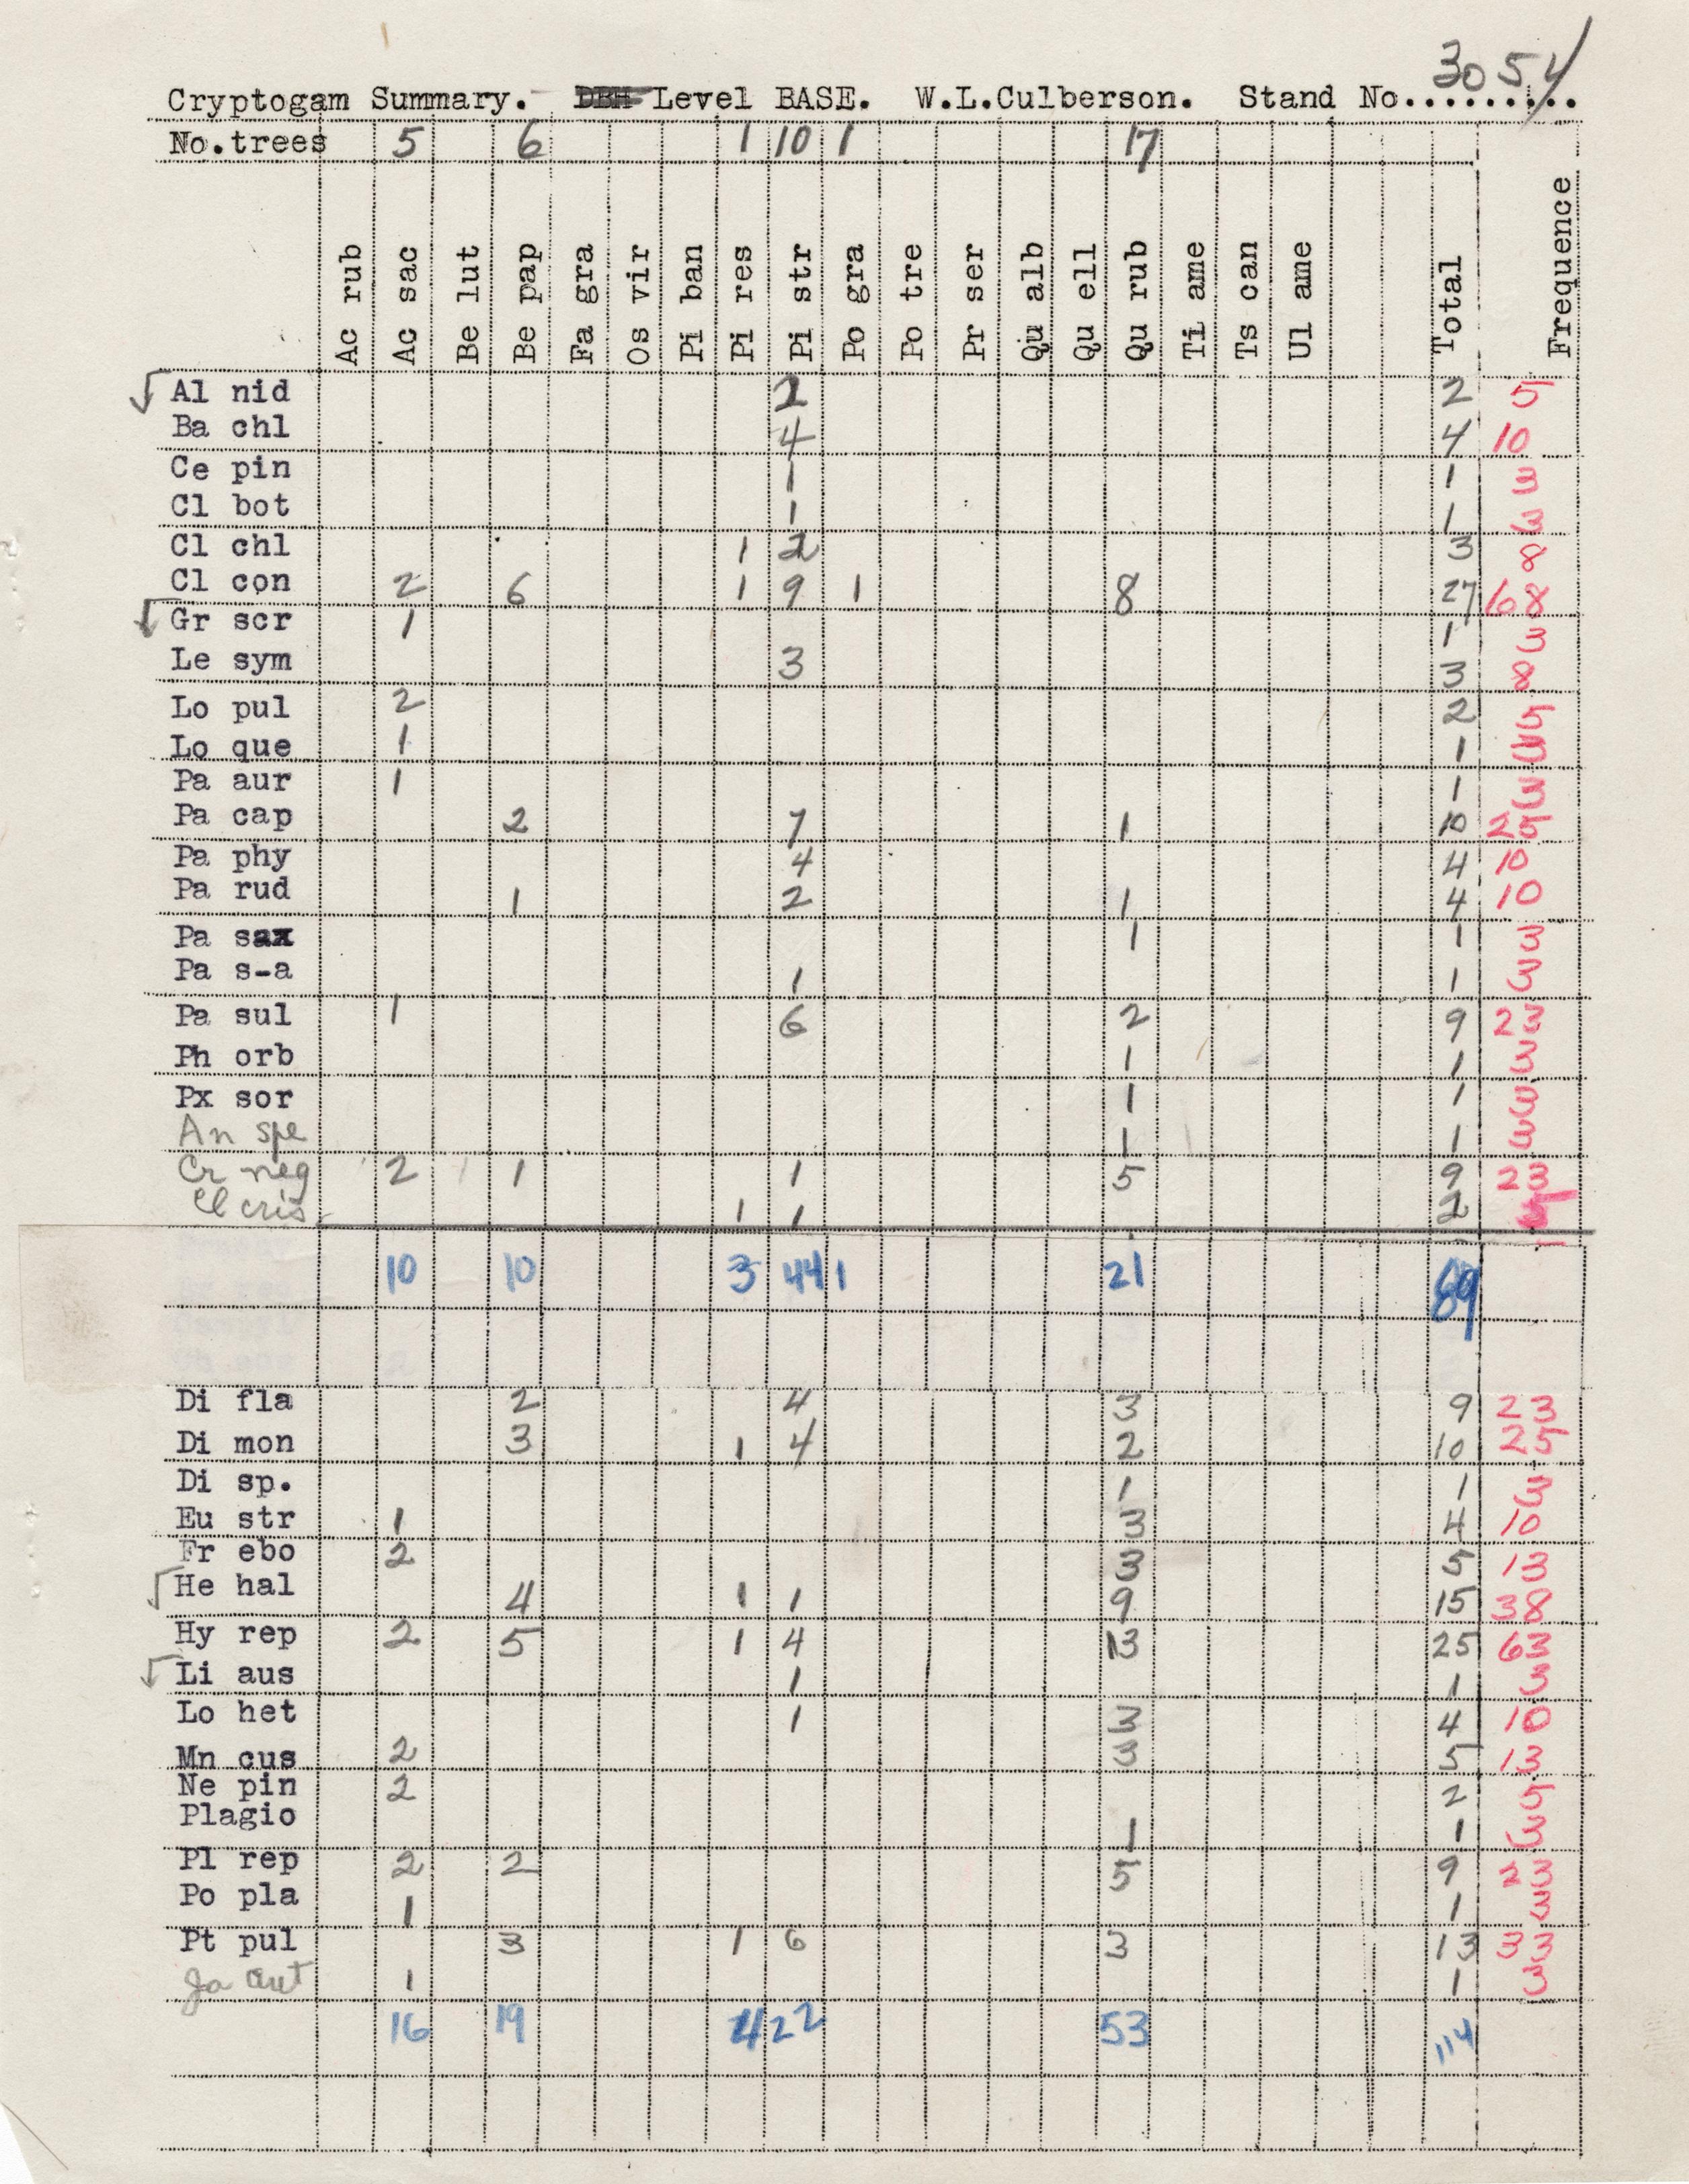 3054
Cryptogam Summary. DBH Level BASE. W.L.Culberson. Stand No..........
No.trees 5 6 1 10 1 17
Ac rub Ac sac Be lut Be pap Fa gra Os vir Pi ban Pi res Pi str Po gra Po tre Pr ser Qu alb Qu ell Qu rub Ti ame Ts can Ul ame Total Frequence
Al nid 2 2 5
Ba chl 4 4 10
Ce pin 1 1 3
Cl bot 1 1 3
Cl chl 1 2 3 8
Cl con 2 6 1 9 1 8 27 68
Gr scr 1 1 3
Le sym 3 3 8
Lo pul 2 2 5
Lo que 1 1 3
Pa aur 1 1 3
Pa cap 2 7 1 10 25
Pa phy 4 4 10
Pa rud 1 2 1 4 10
Pa sax 1 1 3
Pa s-a 1 1 3
Pa sul 1 6 2 9 23
Ph orb 1 1 3
Px sor 1 1 3
An spe 1 1 3
Cr neg 2 1 1 5 9 23
Cl cris 1 1 2 5
10 10 3 44 1 21 89
Di fla 2 4 3 9 23
Di mon 3 1 4 2 10 25
Di sp. 1 1 3
Eu str 1 3 4 10
Fr ebo 2 3 5 13
He hal 4 1 1 9 15 38
Hy rep 2 5 1 4 13 25 63
Li aus 1 1 3
Lo het 1 3 4 10
Mn cus 2 3 5 13
Ne pin 2 2 5
Plagio 1 1 3
Pl rep 2 2 5 9 23
Po pla 1 1 3
Pt pul 3 1 6 3 13 33
Ja aut 1 1 3
16 19 4 22 53 114